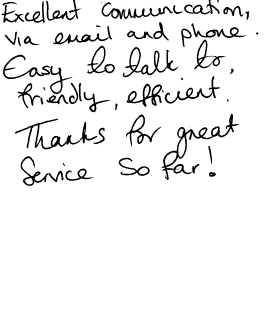 Excellent communication,
via email and phone.
Easy to talk to,
friendly, efficient.
Thanks for great
Service so far!